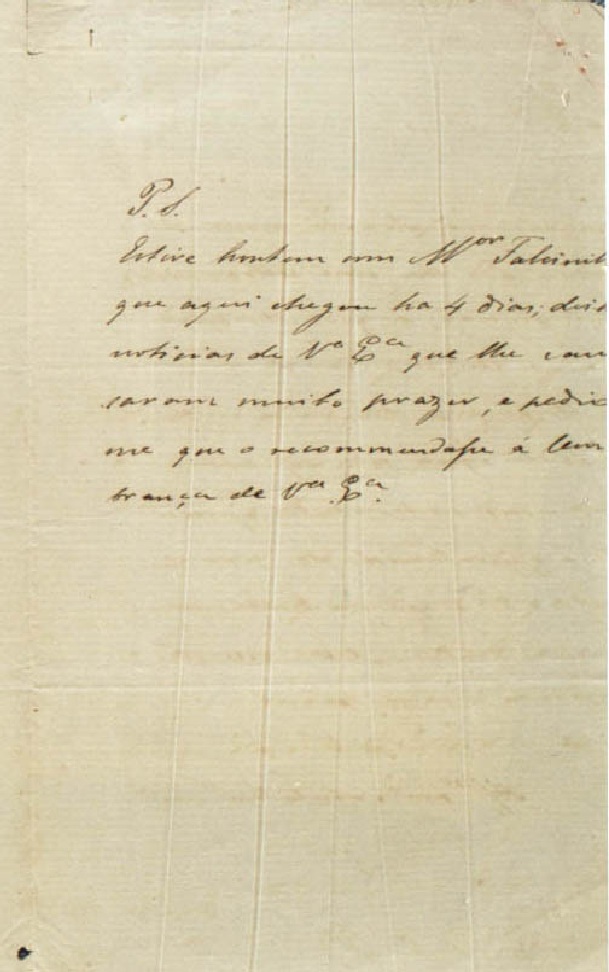 P. S.
Estive hontem com M.or
que aqui chegou ha 4 dias; dei
noticias de V.a E.ca que lhe cau
saram muito prazer, e pedio
me que o recommendasse á lem
brança de V.a E.ca.